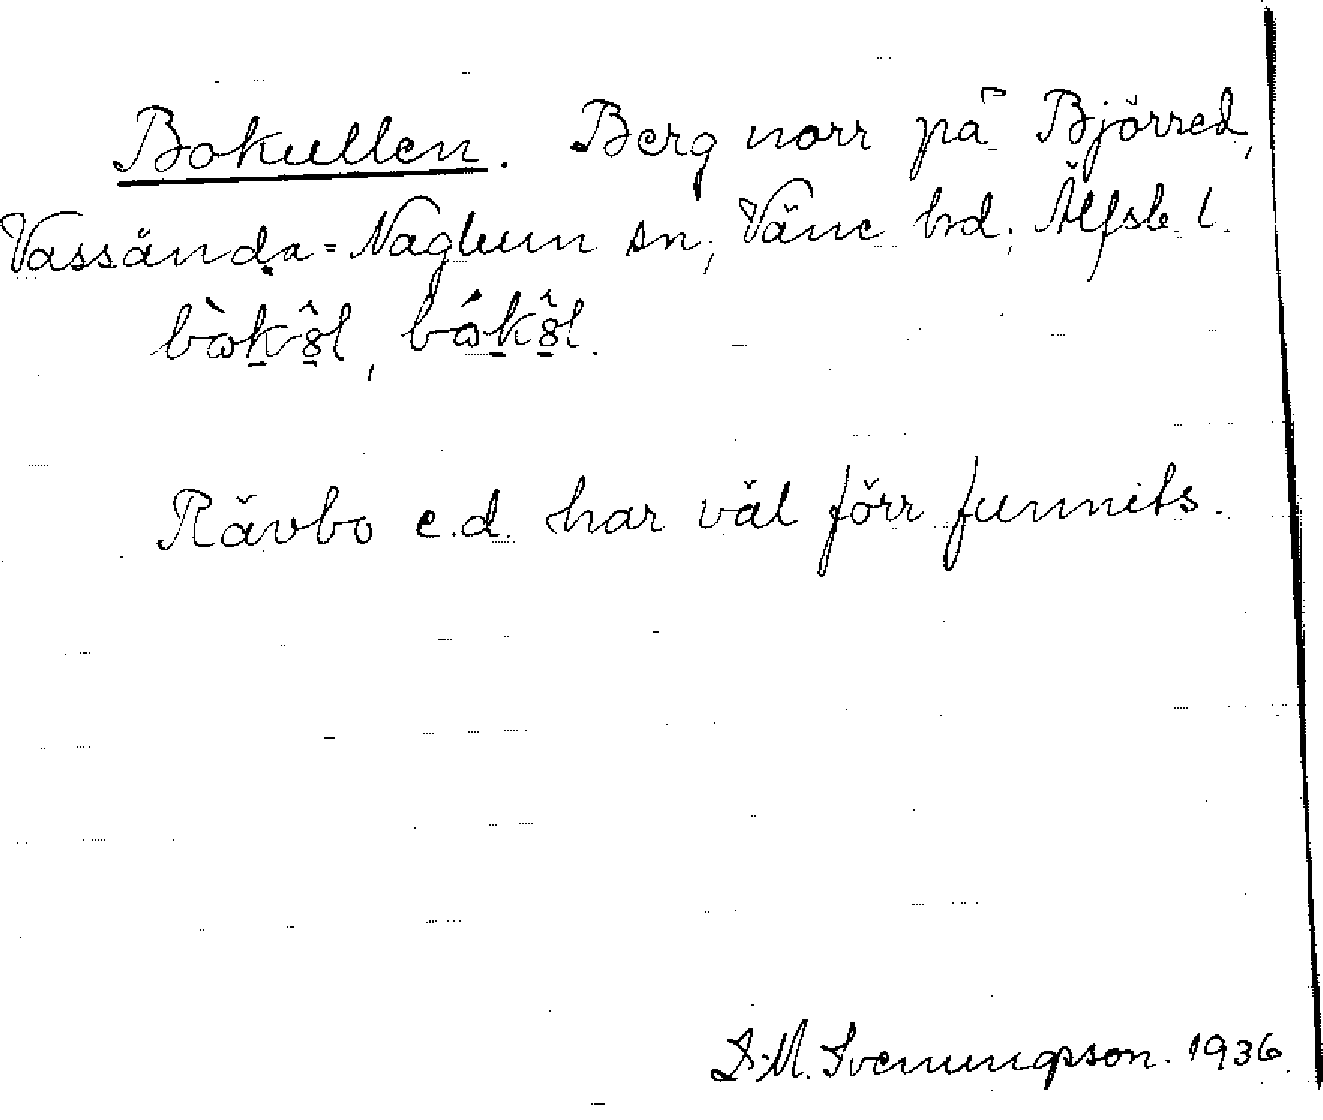 Bokullen. Berg norr på Björred,
Vassända=Naglum sn, Väne hd, Älfsb. l.
Rävbo e.d. har väl förr funnits.
S.M. Svenungsson. 1936